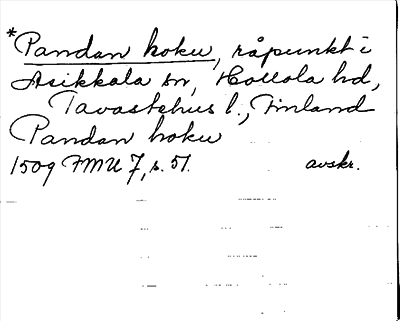 *Pandan hoku, råpunkt i
Asikkala sn, Hollola hd,
Tavastehus l., Finland
Pandan hoku
1509 FMU 7, s. 51. avskr.